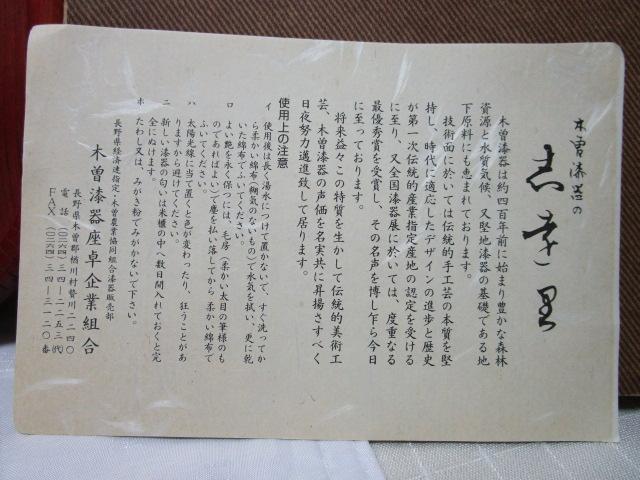 木曽漆器の
志幸里
木曽漆器は約四百年前に始まり豊かな森林
資源と水質気候、又堅地漆器の基礎である地
下原料にも恵まれております。
技術面に於いては伝統的手工芸の本質を堅
持し、時代に適応したデザインの進歩と歴史
が第一次伝統的産業指定産地の認定を受ける
に至り、又全国漆器展に於いては、度重なる
最優秀賞を受賞し、その名声を博し乍ら今日
に至っております。
将来益々この特質を生かして伝統的美術工
芸、木曽漆器の声価を名実共に昇揚さすべく
日夜努力邁進致して居ります。
使用上の注意
イ 使用後は長く湯水につけて置かないで、すぐ洗ってか
ら柔かい綿布(糊気のないもの)で水気を拭い、更に乾
いた綿布でふいてください。
ロ よい艶を永く保つには、毛房(柔かい太目の筆様のも
のであればよい)で塵を払い落してから柔かい綿布で
ふいてください。
ハ 太陽光線に当て置くと色が変わったり、狂うことがあ
りますから避けてください。
ニ 新しい漆器の匂いは米櫃の中へ数日間入れておくと完
全にぬけます。
ホ たわし又は、みがき粉でみがかないで下さい。
長野県経済連指定・木曽農業協同組合漆器販売部
木曽漆器座卓企業組合
長野県木曽郡楢川村贄川二二四〇
電話(〇二六四)三四―二二五三(代)
FAX(〇二六四)三四―三一二〇番